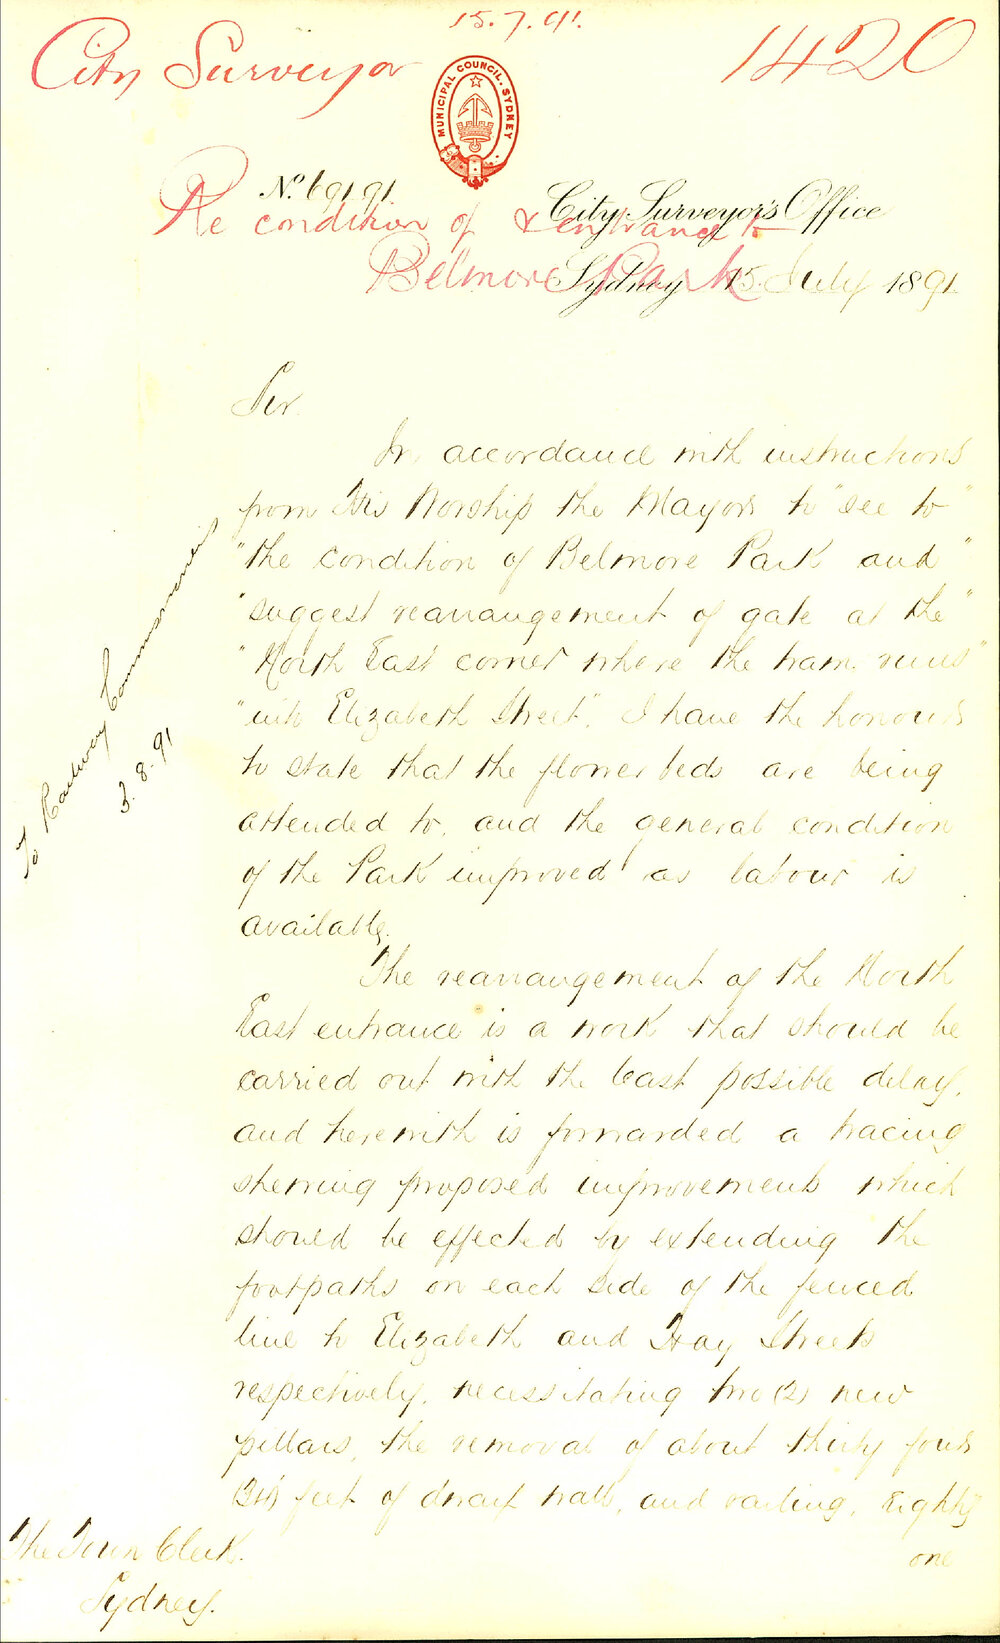 15.7.91.
City Surveyor
1420
MUNICIPAL COUNCIL. SYDNEY
No. 69191.
City Surveyor's Office
Re condition of & entrance to
Belmore Park
Sydney 15. July 1891.
Sir.
In accordance with instructions
from His Worship the Mayor to "see to"
"the condition of Belmore Park and"
"suggest rearrangement of gate at the"
"North East corner where the tram runs"
"into Elizabeth Street". I have the honour
to state that the flower beds are being
attended to, and the general condition
of the Park improved as labour is
available.
The rearrangement of the North
East entrance is a work that should be
carried out with the least possible delay,
and herewith is forwarded a tracing
shewing proposed improvements which
should be effected by extending the
footpaths on each side of the fenced
line to Elizabeth and Hay Streets
respectively, necessitating two (2) new
pillars, the removal of about thirty four
(34) feet of dwarf wall, and railing, Eighty
one
The Town Clerk.
Sydney.
To Railway Commissioners
3.8.91